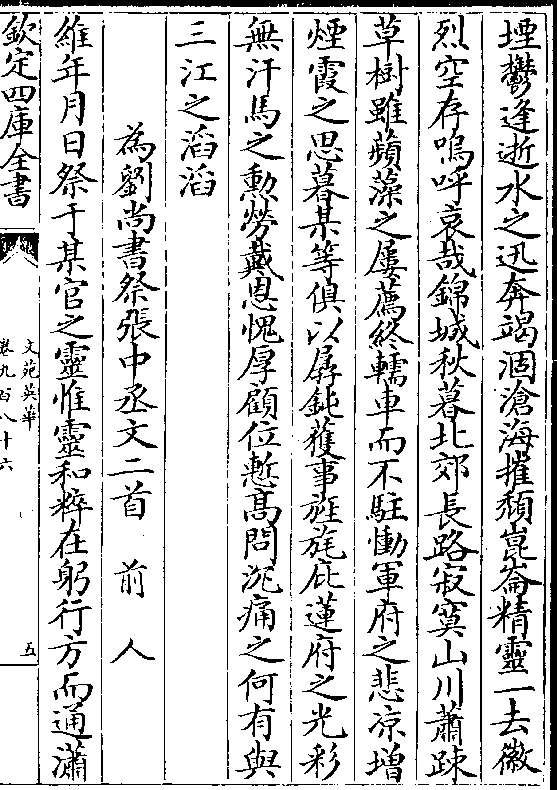 堙鬱逢逝水之迅奔竭涸滄海摧頽崑崙精靈一去徽
烈空存嗚呼哀哉錦城秋暮北郊長路寂寞山川蕭踈
草樹雖蘋藻之屢薦終轜車而不駐慟軍府之悲凉増
煙霞之思暮某等俱以孱鈍獲事旌旄庇蓮府之光彩
無汗馬之勲勞戴恩愧厚顧位慙髙問沉痛之何有與
三江之滔滔
為劉尚書祭張中丞文二首 前人
維年月日祭于某官之靈惟靈和粹在躬行方而通瀟
欽定四庫全書
文苑英華
卷九百八十六
五